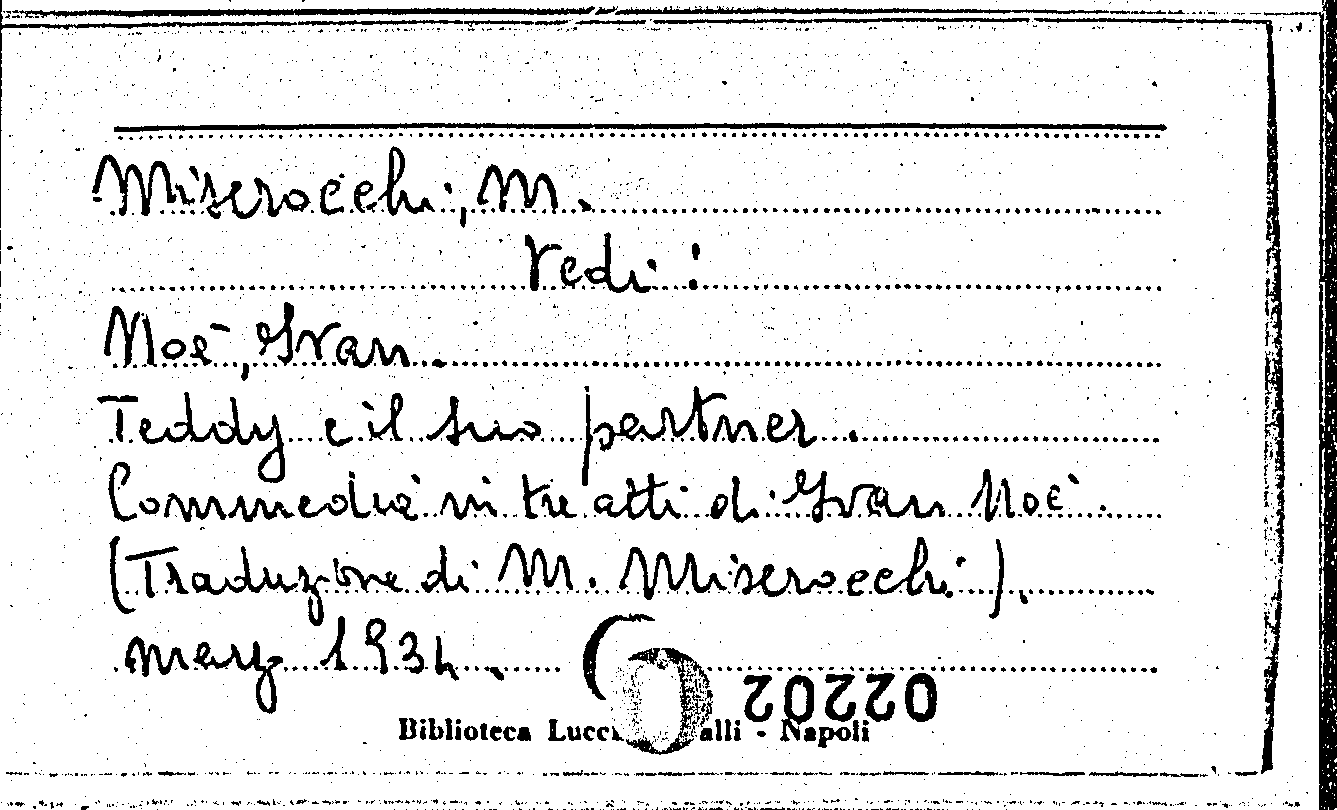 Miserocchi, M.
Vedi:
Noè, Ivan.
Teddy e il suo partner.
Commedia in tre atti di Ivan Noè.
(Traduzione di M. Miserocchi).
marz 1934.
02202
Biblioteca Lucc alli - Napoli